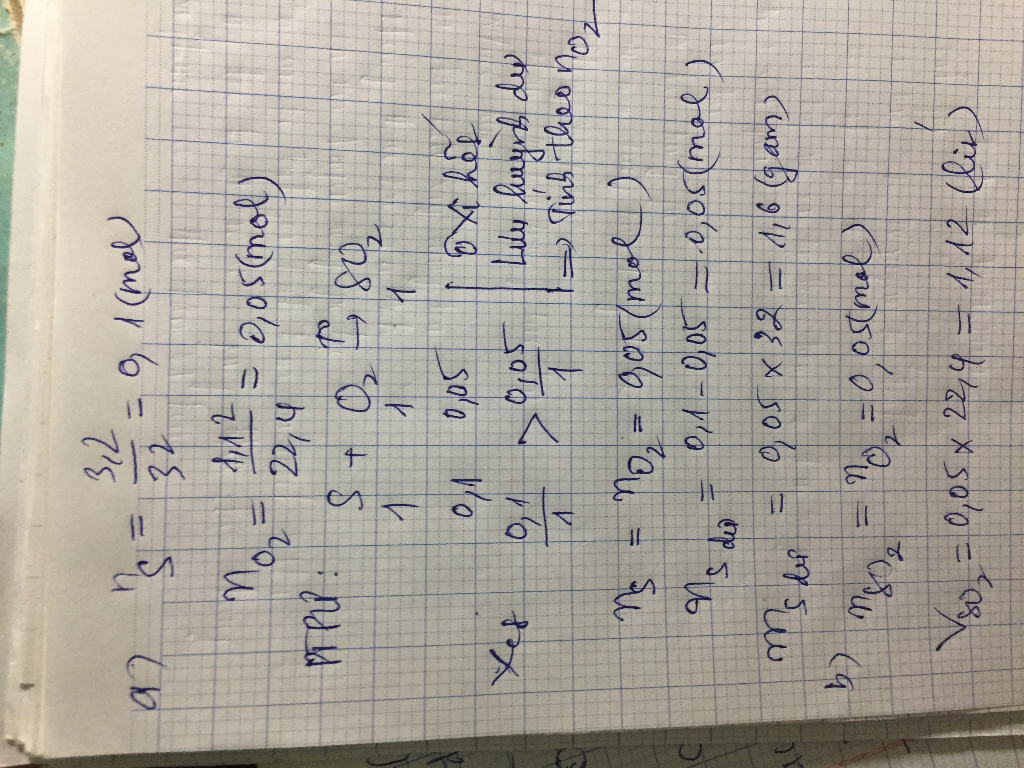 a) nS = 3,2/32 = 0,1 (mol)
nO2 = 1,12/22,4 = 0,05 (mol)
PTPƯ: S + O2 →t° SO2
1 1 1
0,1 0,05 | Oxi hết
Xét 0,1/1 > 0,05/1 | Lưu huỳnh dư
=> Tính theo nO2
nS = nO2 = 0,05 (mol)
nS dư = 0,1 - 0,05 = 0,05 (mol)
mS dư = 0,05 x 32 = 1,6 (gam)
b) nSO2 = nO2 = 0,05 (mol)
VSO2 = 0,05 x 22,4 = 1,12 (lít)